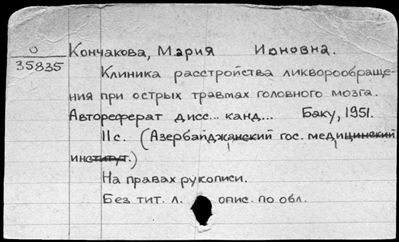 О
35835
Кончакова, Мария Ионовна.
Клиника расстройства ликворообраще-
ния при острых травмах головного мозга.
Автореферат дисс... канд... Баку, 1951.
11с. (Азербайджанский гос. медицинский
институт.)
На правах рукописи.
Без тит. л. опис. по обл.